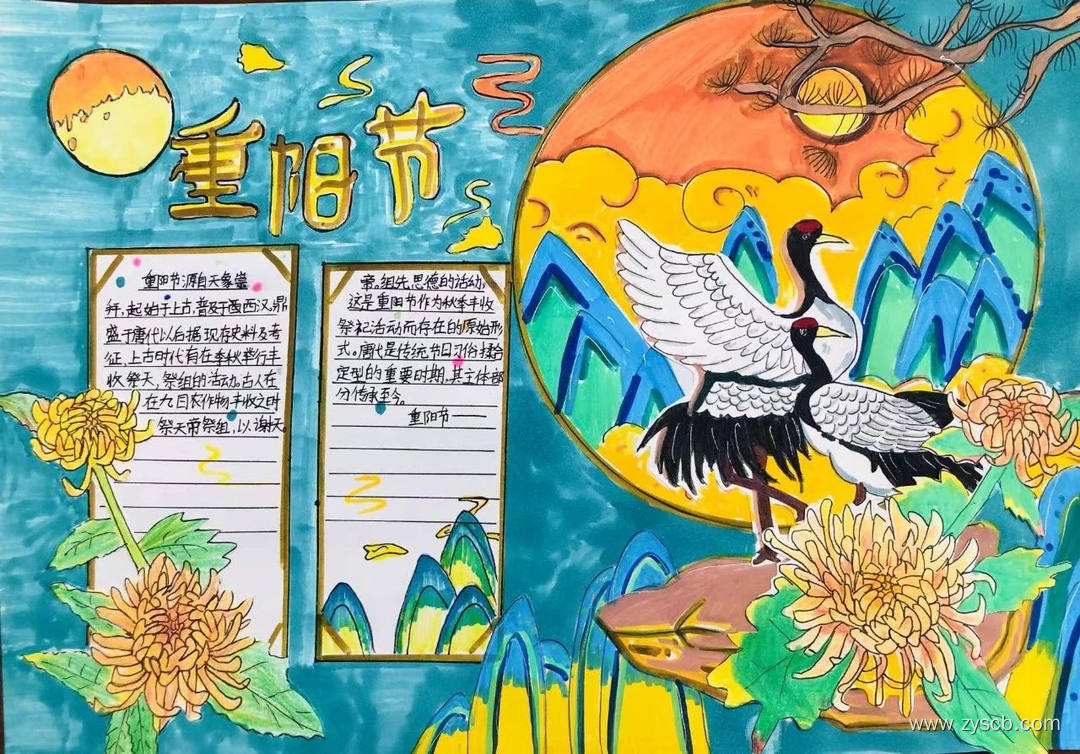 重阳节
重阳节源自天象崇
拜,起始于上古,普及于西汉,鼎
盛于唐代以后据现存史料及考
征,上古时代有在季秋举行丰
收祭天,祭组的活动,古人在
在九日农作物丰收之时
祭天帝祭组,以谢天
帝,组先恩德的活动,
这是重阳节作为秋季丰收
祭祀活动而存在的原始形
式。唐代是传统节日习俗揉合
定型的重要时期,其主体部
分传承至今。
重阳节——
www.zyscb.com